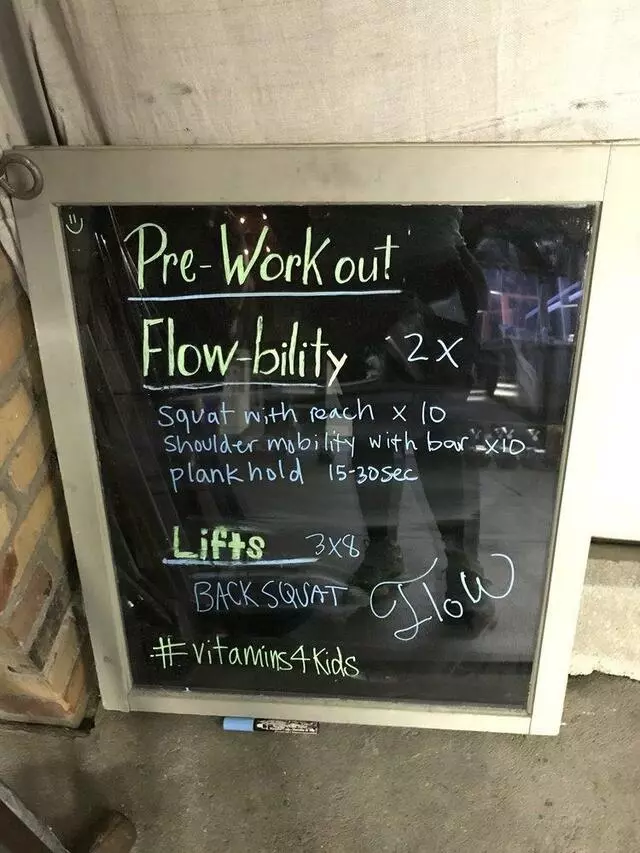 Pre-Work out
Flow-bility 2X
squat with reach x 10
shoulder mobility with bar x10
plank hold 15-30sec
Lifts 3x8
BACK SQUAT Flow
#vitamins4kids